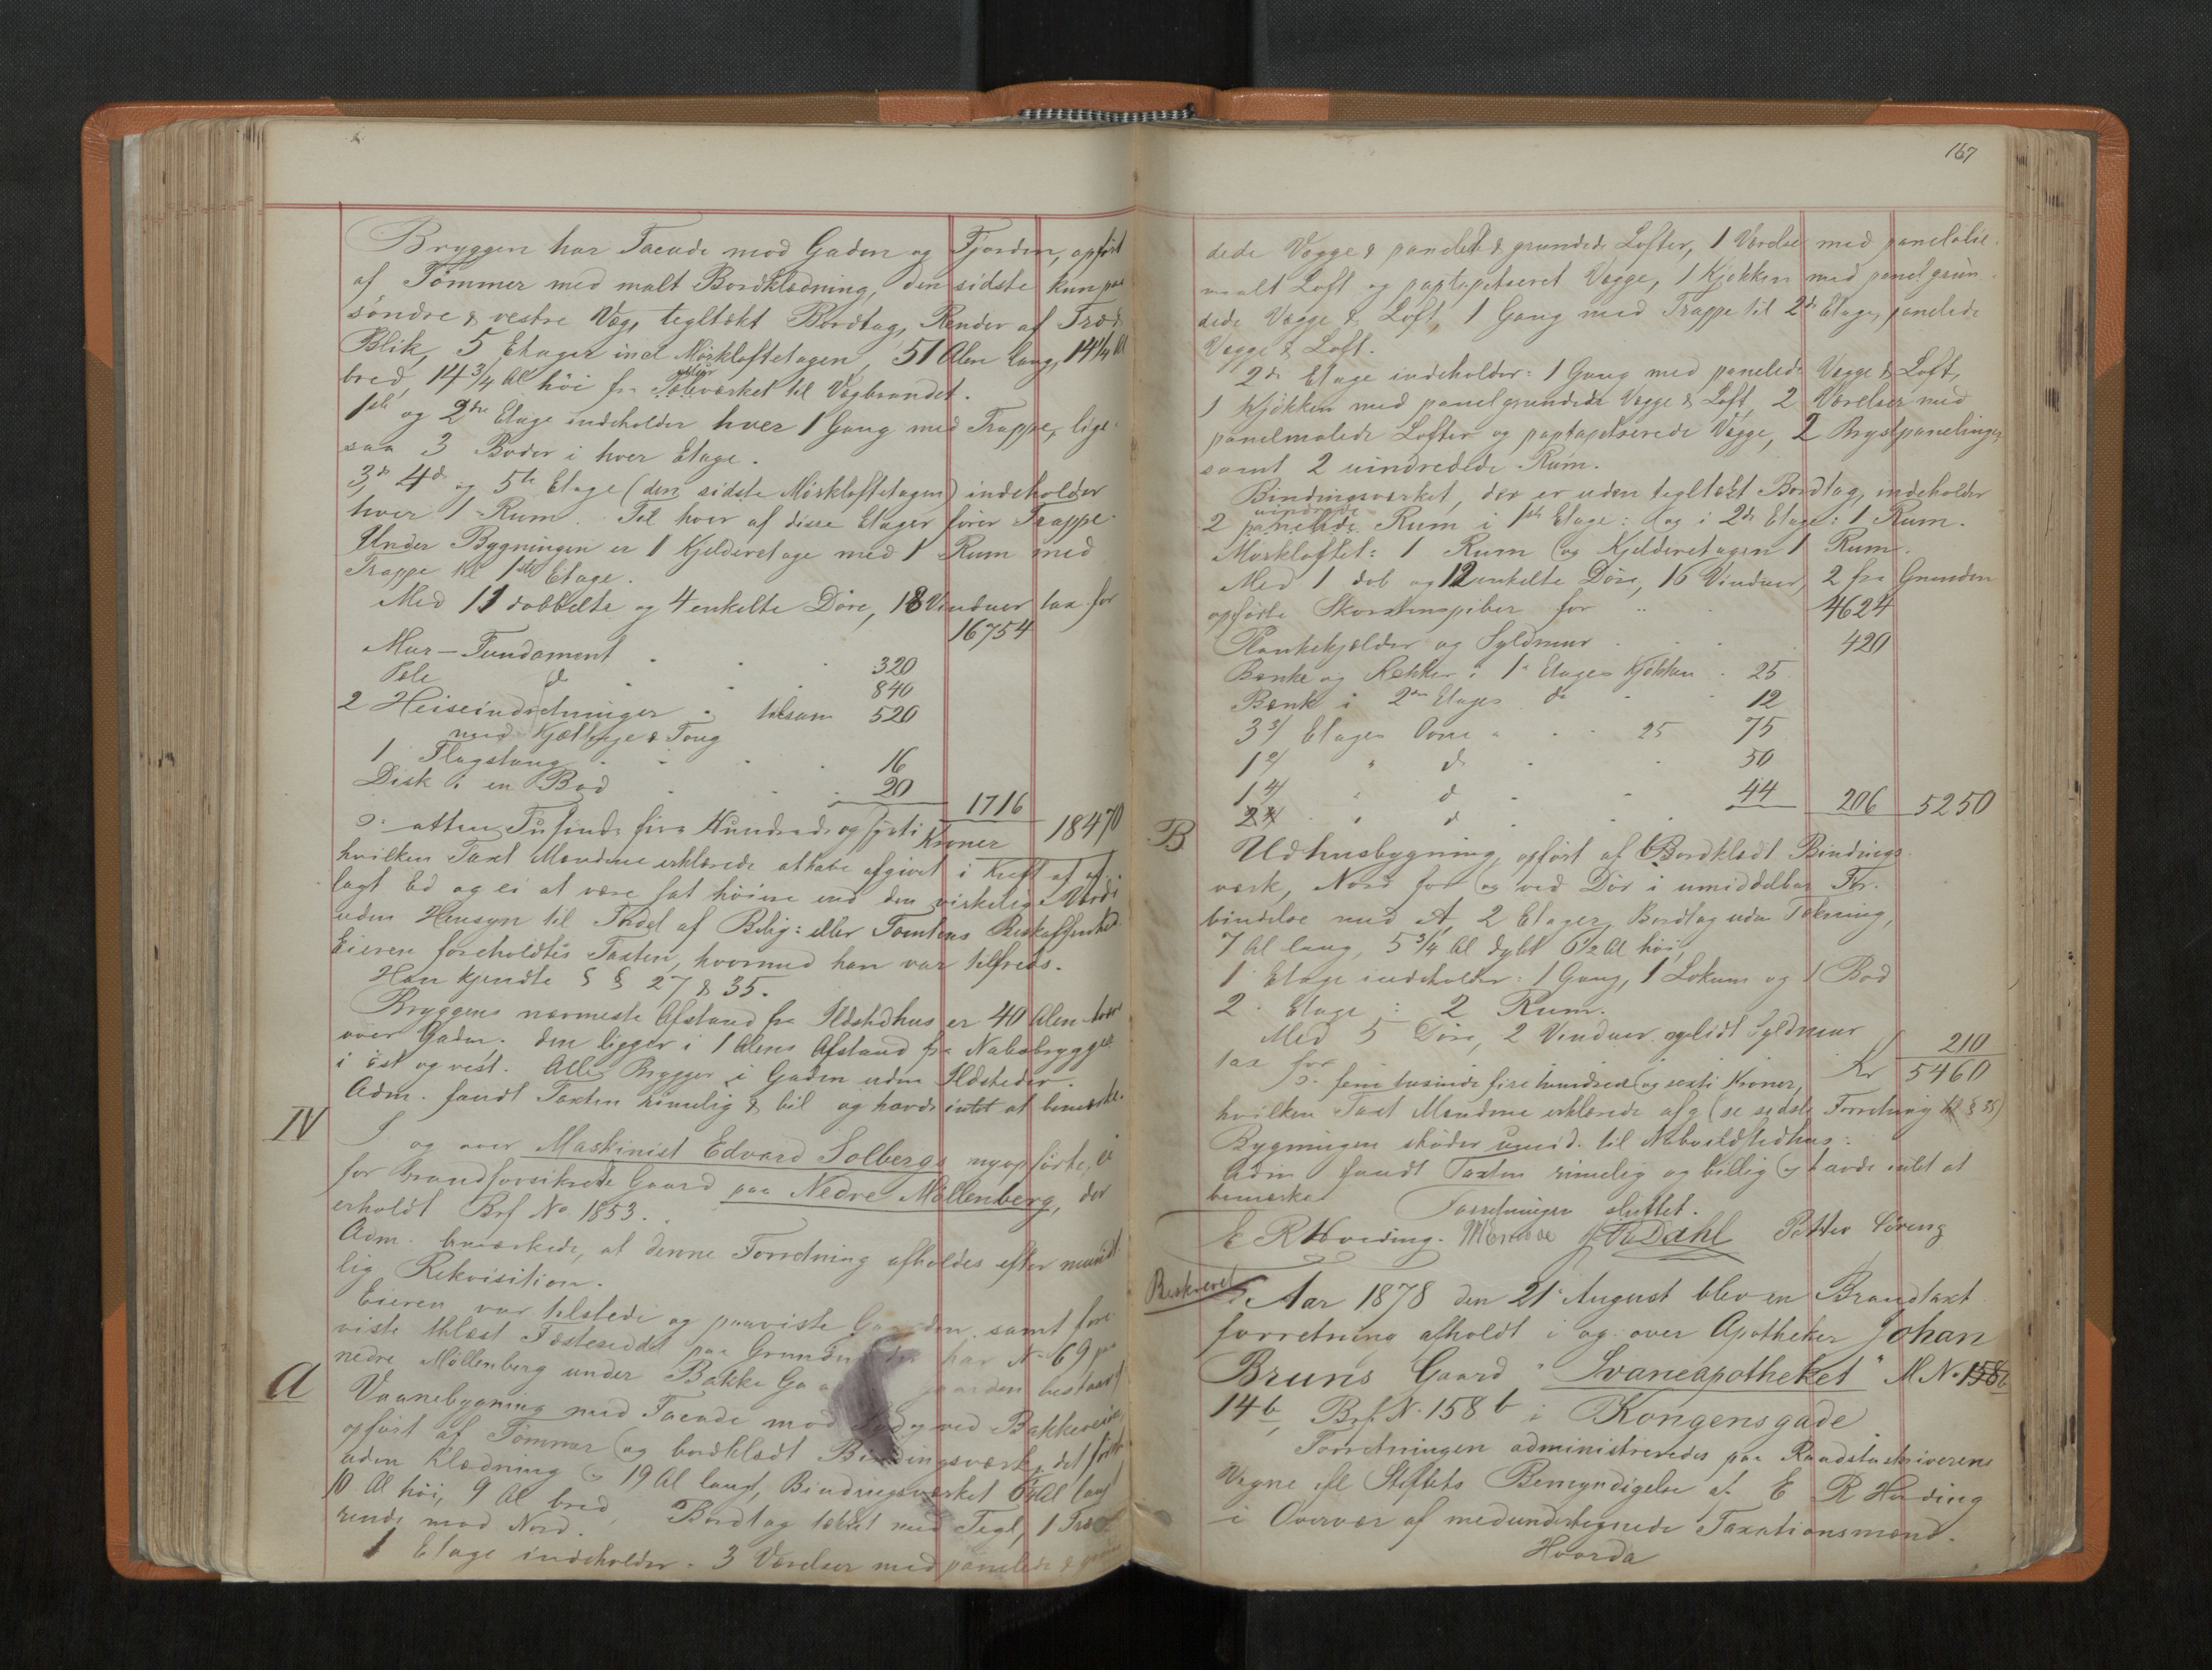 Bryggen har Facade mod Gaden og Fjorden, opført
af Tømmer med malt Bordklædning, den sidste kun paa
søndre & vestre Væg, tegltækt Bordtag, Render af Træ &
Blik, 5 Etager incl Mørkloftetagen, 51 Alen lang, 14 1/4 Al
bred, 14 3/4 Al høi fra Pæleværket til Vægbrandet.
1ste og 2den Etage indeholder hver 1 Gang med Trappe, lige-
saa 3 Boder i hver Etage.
3de 4de og 5te Etage (den sidste Mørkloftetagen) indeholder
hver 1 Rum. Til hver af disse Etager fører Trappe.
Under Bygningen er 1 Kjelderetage med 1 Rum med
Trappe til 1ste Etage.
Med 11 dobbelte og 4 enkelte Døre, 18 Vinduer tax for
16754
Mur-Fundament 320
Pæle d 840
2 Heiseindretninger tilsam 520
med Kjættinge & Toug
1 Flagstang 16
Disk i en Bod 20
1716
ɔ: atten Tusinde fire Hundrede og sytti Kroner 18470
hvilken Taxt Mændene erklærede at have afgivet i Kraft af af-
lagt Ed og ei at være sat høiere end den virkelige Værdi
uden Hensyn til Fordel af Belig: eller Tomtens Beskaffenhed
Eieren foreholdtes Taxten, hvormed han var tilfreds.
Han kjendte § § 27 & 35.
Bryggens nærmeste Afstand fra Ildstedhus er 40 Alen tvert
over Gaden. Den ligger i 1 Alens Afstand fra Nabobrygger
i øst og vest. Alle Brygger i Gaden uden Ildsteder.
Adm. fandt Taxten rimelig & bil og havde intet at bemærke.
IV
I og over Maskinist Edvard Solbergs nyopførte, ei
før brandforsikrede Gaard paa Nedre Møllenberg, der
erholdt Brf No 1853.
Adm. bemærkede, at denne Forretning afholdes efter mundt
lig Rekvisition.
Eieren var tilstede og paaviste Gaarden samt fore
viste thlæst Fæsteseddel paa Grunden der har No 69 paa
nedre Møllenberg under Bakke Gaard Gaarden bestaar af
A
Vaanebygning med Facade mod Syd og ved Bakkeveien,
opført af Tømmer og bordklædt Bindingsværk, det første
uden Klædning og 19 Al langt, Bindingsværket 6 1/2 Al langt
10 Al høi, 9 Al bred. Bordtag tækket med Tegl, 1 Træ
rende mod Nord.
1 Etage indeholder: 3 Værelser med panelede & grun
167
dede Vægge & panelet & grundede Lofter, 1 Værelse med panelolie-
malt Loft og paptapetseret Vægge, 1 Kjøkken med panelgrun-
dede Vægge & Loft, 1 Gang med Trappe til 2de Etage, panelede
Vægge & Loft.
2de Etage indeholder: 1 Gang med panelede Vægge & Loft,
1 Kjøkken med panelgrundede Vægge & Loft, 2 Værelser med
panelmalede Lofter og paptapetserede Vægge, 2 Brystpanelinger
samt 2 uindredede Rum.
Bindingsværket, der er uden tegltækt Bordtag, indeholder
uindrede
2 panelede Rum i 1ste Etage: og i 2de Etage: 1 Rum.
Mørkloftet: 1 Rum og Kjelderetagen 1 Rum.
Med 1 dob og 12 enkelte Døre, 16 Vinduer, 2 fra Grunden
opførte Skorstenspiber for 4624
Plankekjælder og Syldmur 420
Bænke og Rækker i 1 Etages Kjøkken 25
Bænk i 2den Etages do 12
3 3/ Etages Ovne 25 75
1 2/ " d 50
1 4/ " d 44 206 5250
2 4/ " d
B
Udhusbygning, opført af Bordklædt Bindings-
værk, Nord for og ved Dør i umiddelbar For-
bindelse med A, 2 Etager, Bordtag uden Tækning,
7 Al lang, 5 3/4 Al dybt 6 1/2 Al høi,
1 Etage indeholder: 1 Gang, 1 Lokum og 1 Bod
2 Etage : 2 Rum.
Med 5 Døre, 2 Vinduer og lidt Syldmur
tax for 210
Kr 5460
ɔ: fem tusinde fire hundrede og sexti Kroner,
hvilken Taxt Mændene erklærede afg (se sidste Forretning til § 35)
Bygningen støder umid. til Naboildstedhus:
Adm fandt Taxten rimelig og billig og havde intet at
bemærke
Forretningen sluttet.
E R Hveding. J Dahl Petter Lorenz
Beskrevet
Aar 1878 den 21 August blev en Brandtaxt
forretning afholdt i og over Apotheker Johan
Bruns Gaard "Svaneapotheket" M No 158b
14b, Brf. No 158b i Kongensgade
Forretningen administreredes paa Raadstuskriverens
Vegne efl Stiftets Bemyndigelse af E R Hveding
i Overvær af medundertegnede Taxationsmænd.
Hvorda